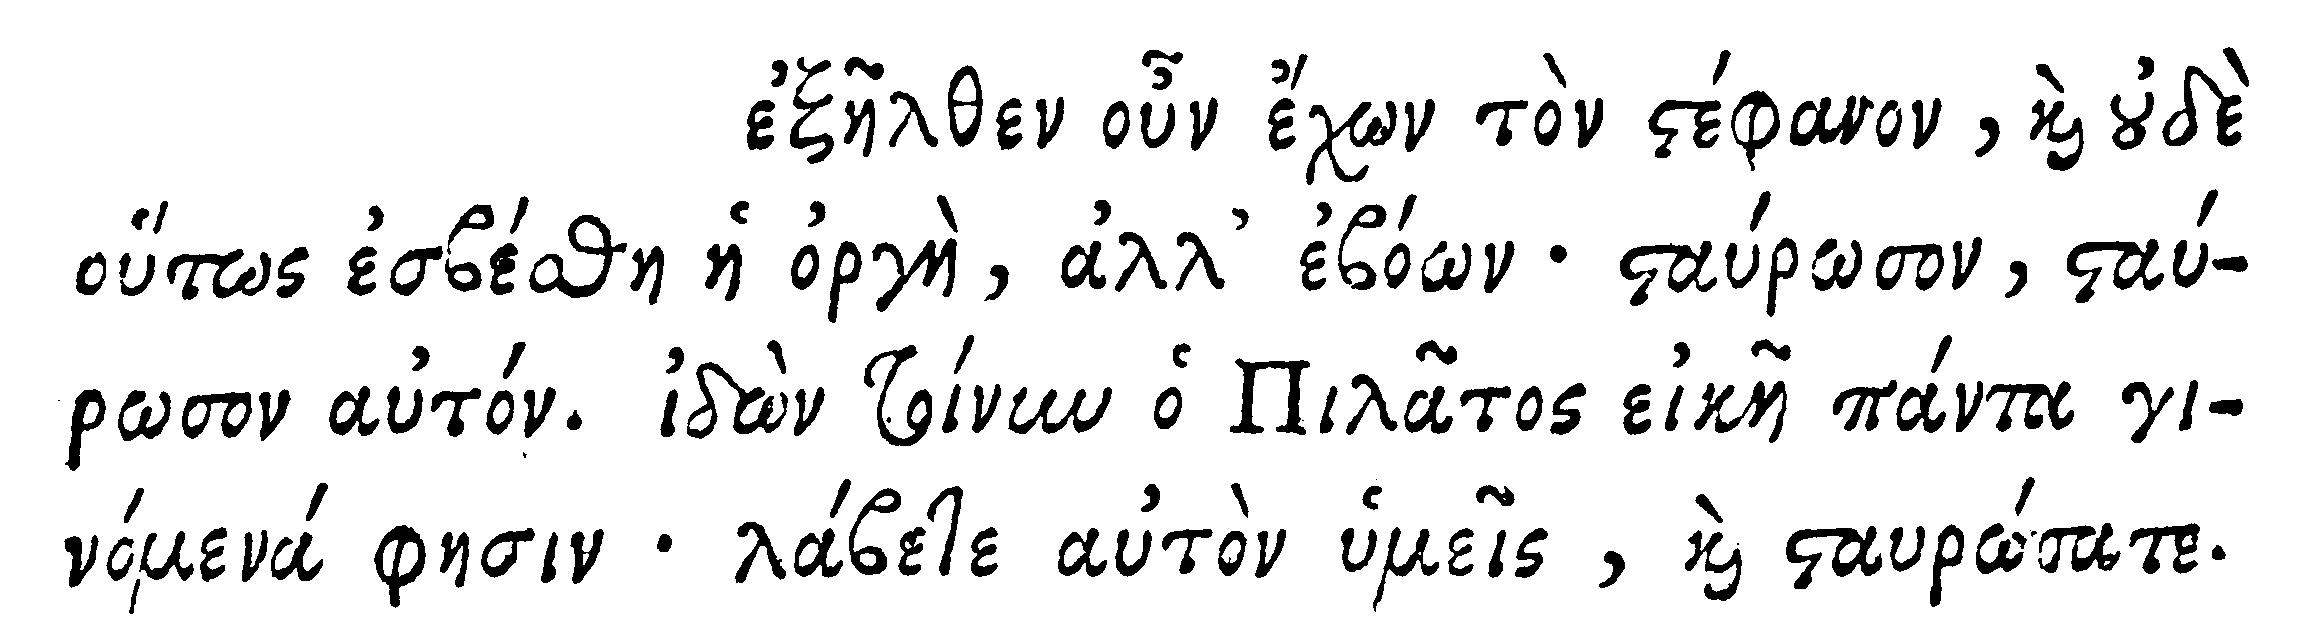 ἐξῆλθεν οὖν ἔχων τὸν ϛέφανον, ϗ̀ ȣ̓δὲ
οὕτως ἐσβέσθη ἡ ὀργὴ, ἀλλ᾽ ἐβόων · ϛαύρωσον, ϛαύ-
ρωσον αὐτόν. ἰδὼν τοίνυν ὁ Πιλᾶτος εἰκῆ πάντα γι-
νόμενά φησιν · λάβετε αὐτὸν ὑμεῖς, ϗ̀ ϛαυρώσατε.